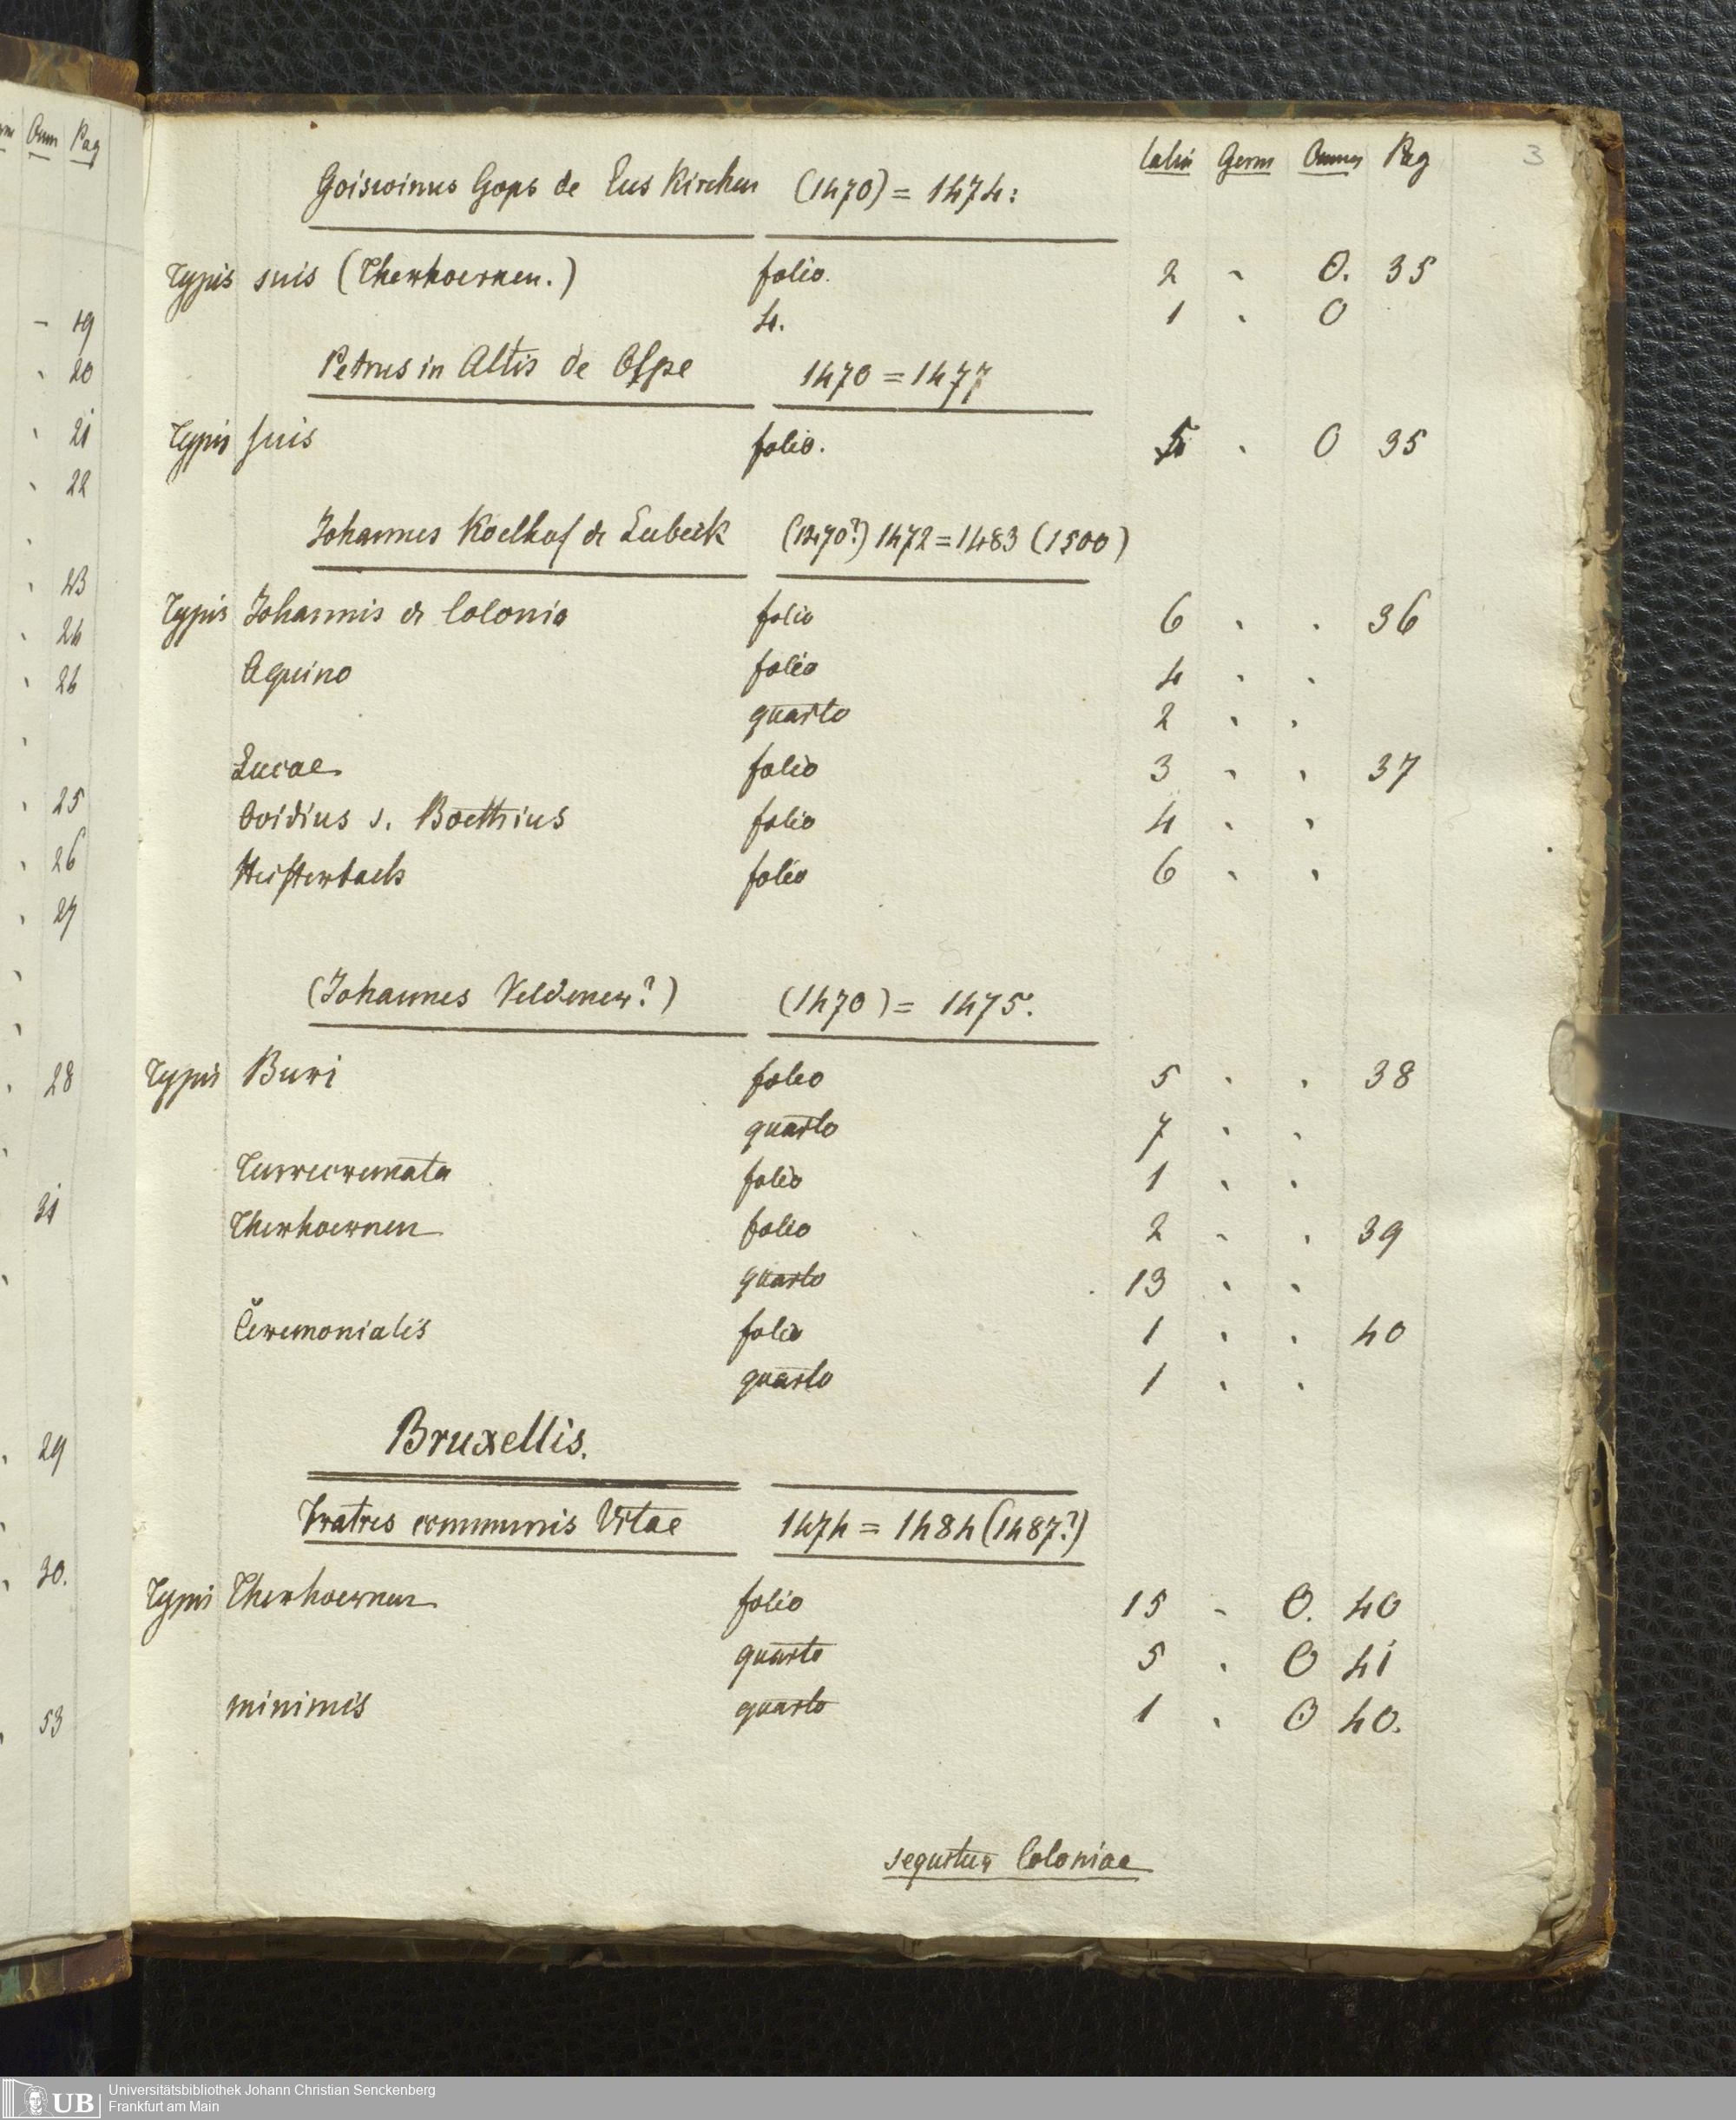 Omn Pag
19
20
21
22
23
24
26
25
26
27
28
31
29
30.
53
3
Latin Germ Omnes Pag
Goiswinus Gops de Eus Kirchen (1470) = 1474:
Typis suis (Therhoernen.) folio. 2 - 0. 35
4. 1 . 0
Petrus in Altis de Olpe 1470 = 1477
Typis suis folio. 5 . 0 35
Johannes Koelhof de Lubeck (1470?) 1472 = 1483 (1500)
Typis Johannis de Colonia folio 6 . . 36
Aquino folio 4 . .
quarto 2 . .
Lucae folio 3 . . 37
Ovidius s. Boethius folio 4 . .
Heisterbach folio 6 . .
(Johannes Veldener?) (1470) = 1475.
Typis Buri folio 5 . . 38
quarto 7 . .
Turrecremata folio 1 . .
Therhoernen folio 2 - . 39
quarto 13 . .
Ceremonialis folio 1 . . 40
quarto 1 . .
Bruxellis.
Fratres communis Vitae 1474 = 1484 (1487?)
Typis Therhoernen folio 15 - 0. 40
quarto 5 . 0 41
minimis quarto 1 . 0 40.
sequitur Coloniae
UB Universitätsbibliothek Johann Christian Senckenberg
Frankfurt am Main